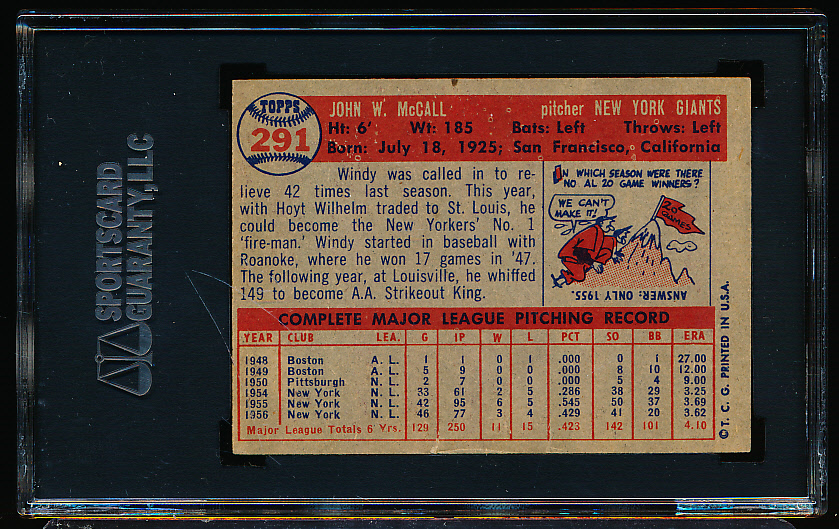 SPORTSCARD
GUARANTY, LLC
TOPPS
291
JOHN W. McCALL pitcher NEW YORK GIANTS
Ht: 6' Wt: 185 Bats: Left Throws: Left
Born: July 18, 1925; San Francisco, California
Windy was called in to re-
lieve 42 times last season. This year,
with Hoyt Wilhelm traded to St. Louis, he
could become the New Yorkers' No. 1
'fire-man.' Windy started in baseball with
Roanoke, where he won 17 games in '47.
The following year, at Louisville, he whiffed
149 to become A.A. Strikeout King.
IN WHICH SEASON WERE THERE
NO AL 20 GAME WINNERS?
WE CAN'T
MAKE IT!
20
GAMES
ANSWER: ONLY 1955.
COMPLETE MAJOR LEAGUE PITCHING RECORD
YEAR CLUB LEA. G IP W L PCT SO BB ERA
1948 Boston A. L. 1 1 0 1 .000 0 1 27.00
1949 Boston A. L. 5 9 0 0 .000 8 10 12.00
1950 Pittsburgh N. L. 2 7 0 0 .000 5 4 9.00
1954 New York N. L. 33 61 2 5 .286 38 29 3.25
1955 New York N. L. 42 95 6 5 .545 50 37 3.69
1956 New York N. L. 46 77 3 4 .429 41 20 3.62
Major League Totals 6 Yrs. 129 250 11 15 .423 142 101 4.10
© T. C. G. PRINTED IN U.S.A.